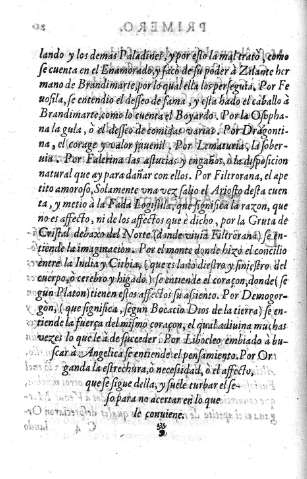 PRIMERO.
lando y los demas Paladines, y por esto la mal trató, como
se cuenta en el Enamorado, y sacó de su poder à Zilante her
mano de Brandimarte, por lo qual ella los perseguia. Por Fe
uosilla, se entendio el desseo de fama, y esta hado el caballo à
Brandimarte, como lo cuenta el Boyardo. Por la
la gula, ò el desseo de comidas varias. Por Dragonti-
na, el corage y valor juuenil. Por la sober-
uia. Por Falerina las astucias y engaños, ò la disposicion
natural que ay para dañar con ellos. Por Filtrorana, el ape
tito amoroso, Solamente vna vez salio el Ariosto desta cuen
ta, y metio à la Fada Logistilla, que significa la razon, que
no es affecto, ni de los affectos que è dicho, por la Gruta de
Cristal debaxo del Norte (dande viuia Filtrorana) se en-
tiende la imaginacion. Por el monte donde hizo el concilio
entre la India y Citbia, (que es lado diestro y siniestro del
cuerpo, ò cerebro y higado) se entiende el coraçon, donde (se
gun Platon) tienen estos affectos su asiento. Por Demogor-
gon, (que significa, segun Bocacio Dios de la tierra) se en-
tiende la fuerça del mismo coraçon, el qual adiuina muchas
vezes lo que le à de suceder. Por Libocleo embiado à bus-
car à Angelica se entiende el pensamiento. Por Or
ganda la estrechura, ò necesidad, ò el affecto,
que se sigue della, y suele turbar el se-
so para no acertar en lo que
le conuiene.